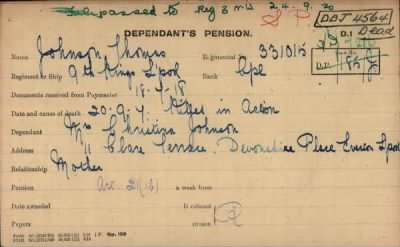 passed to Reg 3 24.9.20
DBJ 4564
Dead
DEPENDANT'S PENSION.
D.1
Name Johnson Thomas
Regimental No. 331015
Regiment or Ship 9th Kings Lpool
Rank Cpl
Documents received from Paymaster 18.4.18
Date and cause of death 20.9.17. Killed in Action
Dependant Mrs Christina Johnson
Address 11 Clare Terrace. Devonshire Place Everton Lpool
Relationship Mother
Pension Art 21(1b) a week from
Date awarded If refused
Papers reason